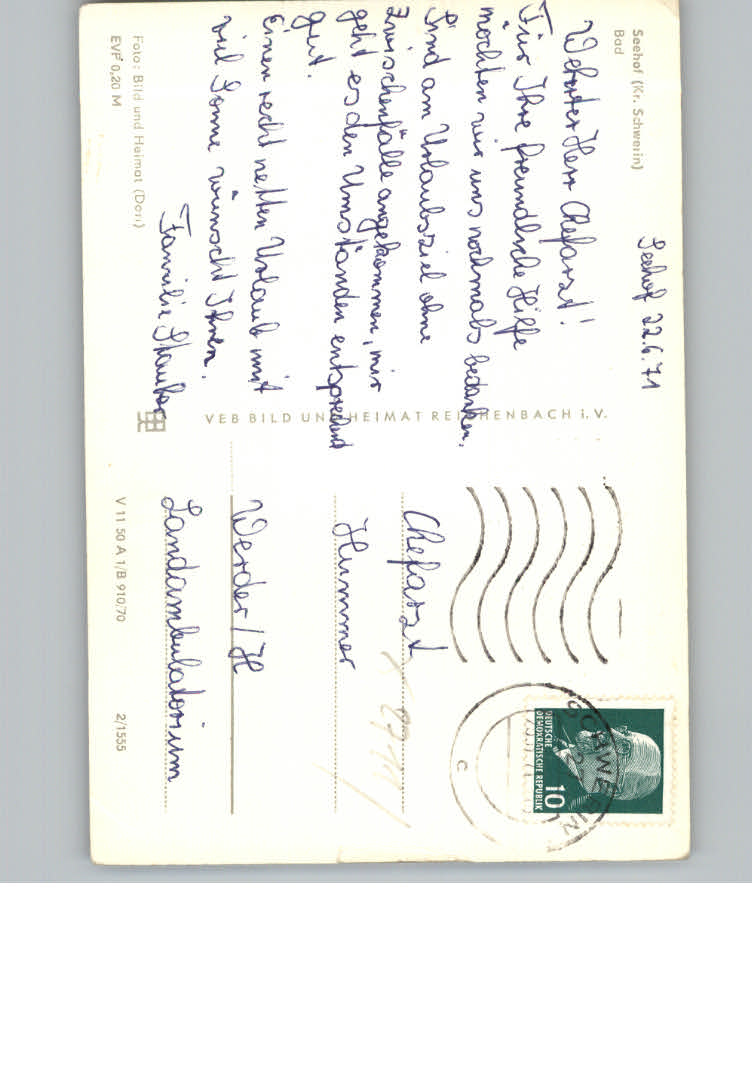 Seehof (Kr. Schwerin)
Bad
Seehof 22.6.71
Wehrter Herr Chefarzt!
Für Ihre freundliche Hilfe
möchten wir uns nochmals bedanken.
Sind am Urlaubsziel ohne
Zwischenfälle angekommen, mir
geht es den Umständen entsprechend
gut.
Einen recht netten Urlaub mit
viel Sonne wünscht Ihnen.
Familie
Foto: Bild und Heimat (Dori)
EVP 0,20 M
VEB BILD UND HEIMAT REICHENBACH i. V.
SCHWERIN
C
DEUTSCHE
DEMOKRATISCHE REPUBLIK
10
Chefarzt
Hummer
Werder/H
Landambulatorium
V 11 50 A 1/B 910/70
2/1555